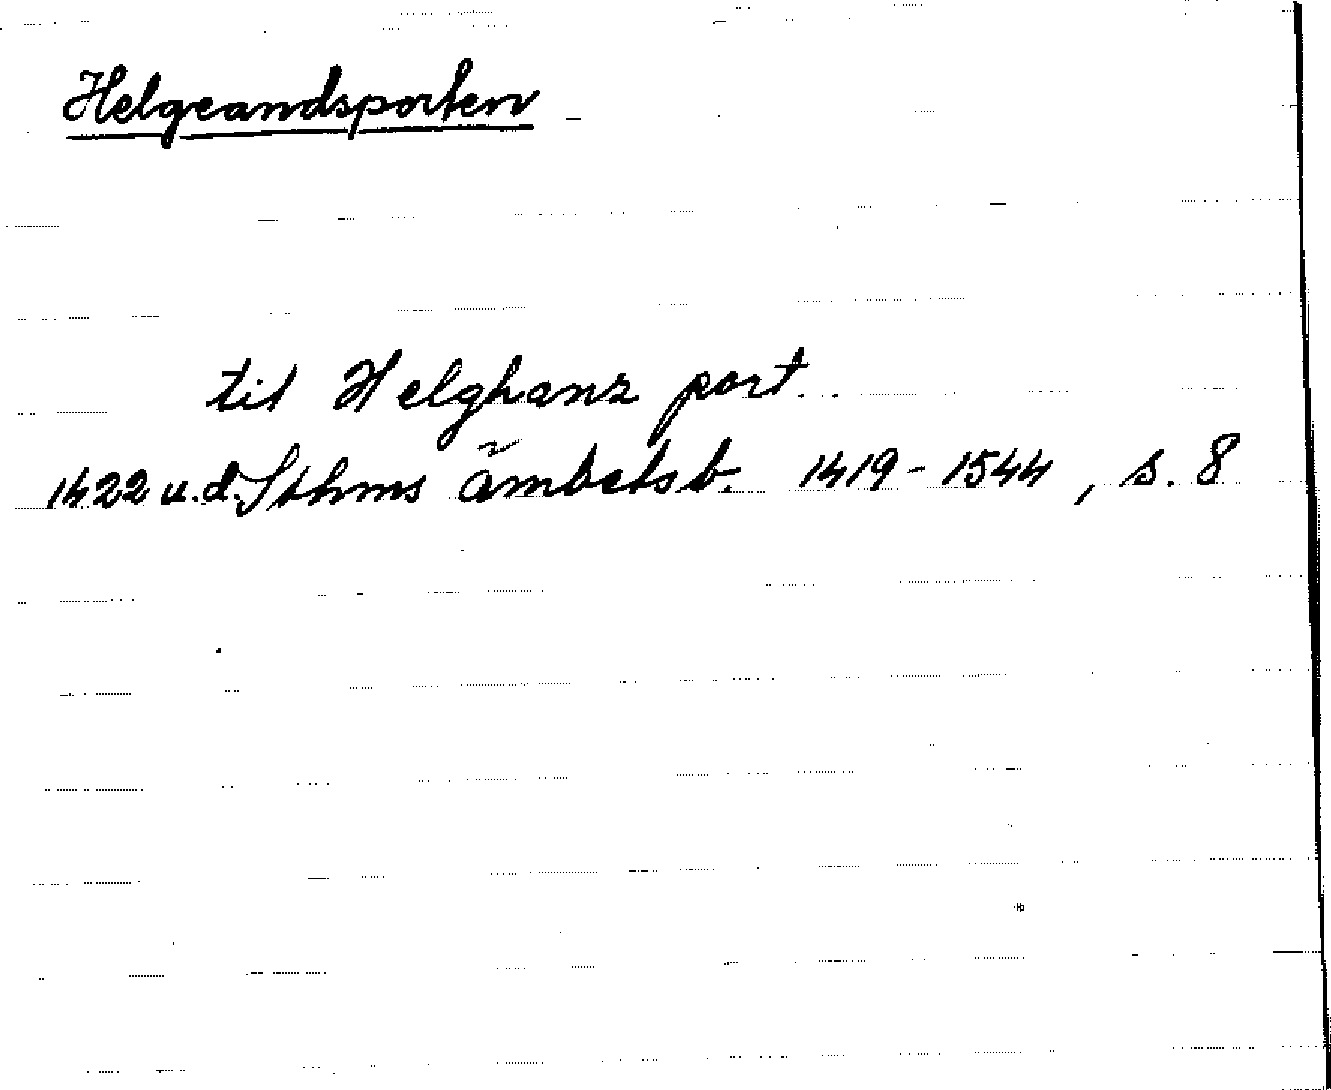 Helgeandsporten
til Helghanz port
1422 u.d. Sthms ämbetsb. 1419-1544, s. 8